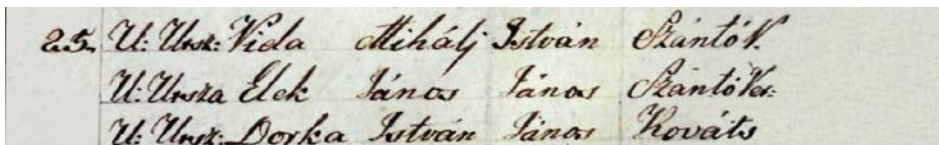 25. U: Ursz: Vida Mihálj István Szántó V.
U: Ursza Elek János János Szántó Ver:
U: Ursz: Dorka István János Kováts